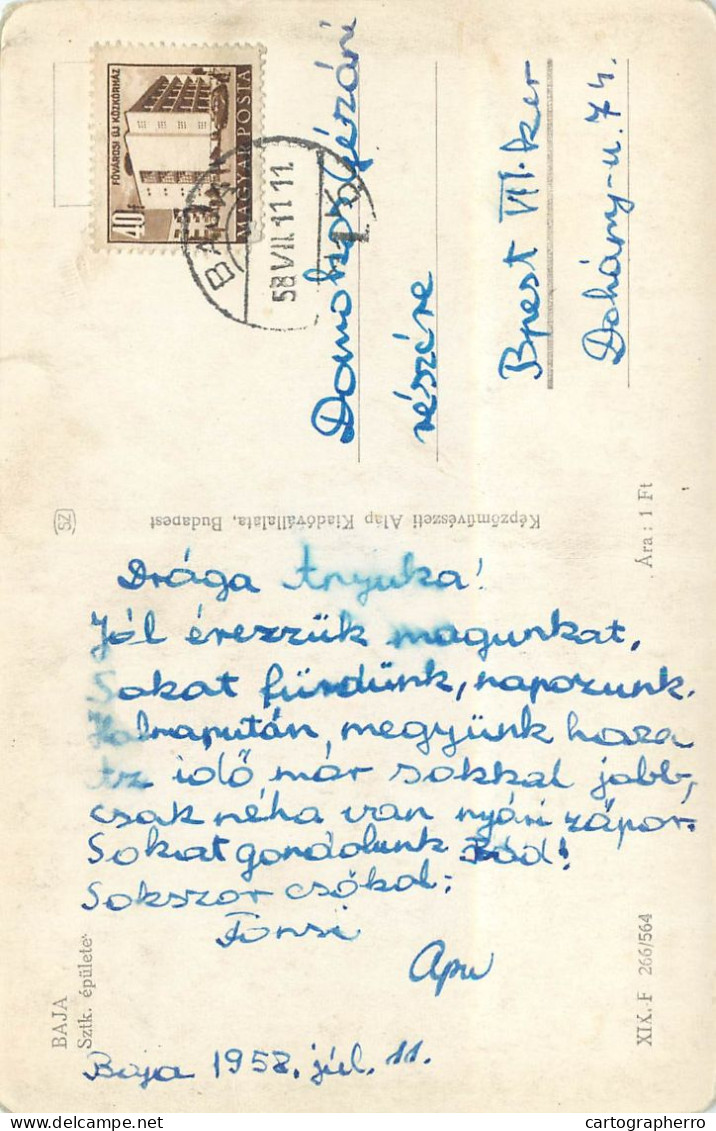 FŐVÁROSI ÚJ KÖZKÓRHÁZ
MAGYAR POSTA
40f
BAJA
58 VII. 11 11
Domokos Gézáné
részére
Bpest VII. ker
Dohány-u. 74.
Képzőművészeti Alap Kiadóvállalata, Budapest
SZ
Ára: 1 Ft
Drága Anyuka!
Jól érezzük magunkat,
Sokat fürdünk, napozunk.
Holnapután, megyünk haza
Az idő már sokkal jobb,
csak néha van nyári zápor.
Sokat gondolunk Rád!
Sokszor csókol:
Apu
Baja 1958. júl. 11.
BAJA
Sztk. épülete
XIX. F 266/564
delcampe.net
cartographerro